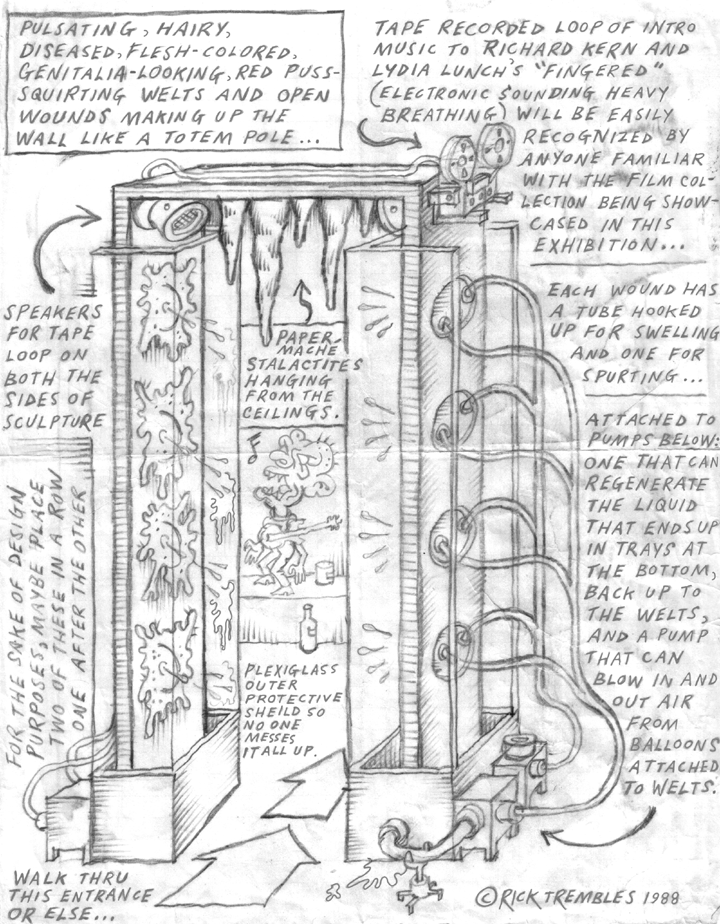 PULSATING, HAIRY,
DISEASED, FLESH-COLORED,
GENITALIA-LOOKING, RED PUSS-
SQUIRTING WELTS AND OPEN
WOUNDS MAKING UP THE
WALL LIKE A TOTEM POLE...
TAPE RECORDED LOOP OF INTRO
MUSIC TO RICHARD KERN AND
LYDIA LUNCH'S "FINGERED"
(ELECTRONIC SOUNDING HEAVY
BREATHING) WILL BE EASILY
RECOGNIZED BY
ANYONE FAMILIAR
WITH THE FILM COL-
LECTION BEING SHOW-
CASED IN THIS
EXHIBITION...
SPEAKERS
FOR TAPE
LOOP ON
BOTH THE
SIDES OF
SCULPTURE
PAPER-
MACHE
STALACTITES
HANGING
FROM THE
CEILINGS.
EACH WOUND HAS
A TUBE HOOKED
UP FOR SWELLING
AND ONE FOR
SPURTING...
ATTACHED TO
PUMPS BELOW:
ONE THAT CAN
REGENERATE
THE LIQUID
THAT ENDS UP
IN TRAYS AT
THE BOTTOM,
BACK UP TO
THE WELTS,
AND A PUMP
THAT CAN
BLOW IN AND
OUT AIR
FROM
BALLOONS
ATTACHED
TO WELTS.
FOR THE SAKE OF DESIGN
PURPOSES, MAYBE PLACE
TWO OF THESE IN A ROW
ONE AFTER THE OTHER
PLEXIGLASS
OUTER
PROTECTIVE
SHEILD SO
NO ONE
MESSES
IT ALL UP.
WALK THRU
THIS ENTRANCE
OR ELSE...
©RICK TREMBLES 1988